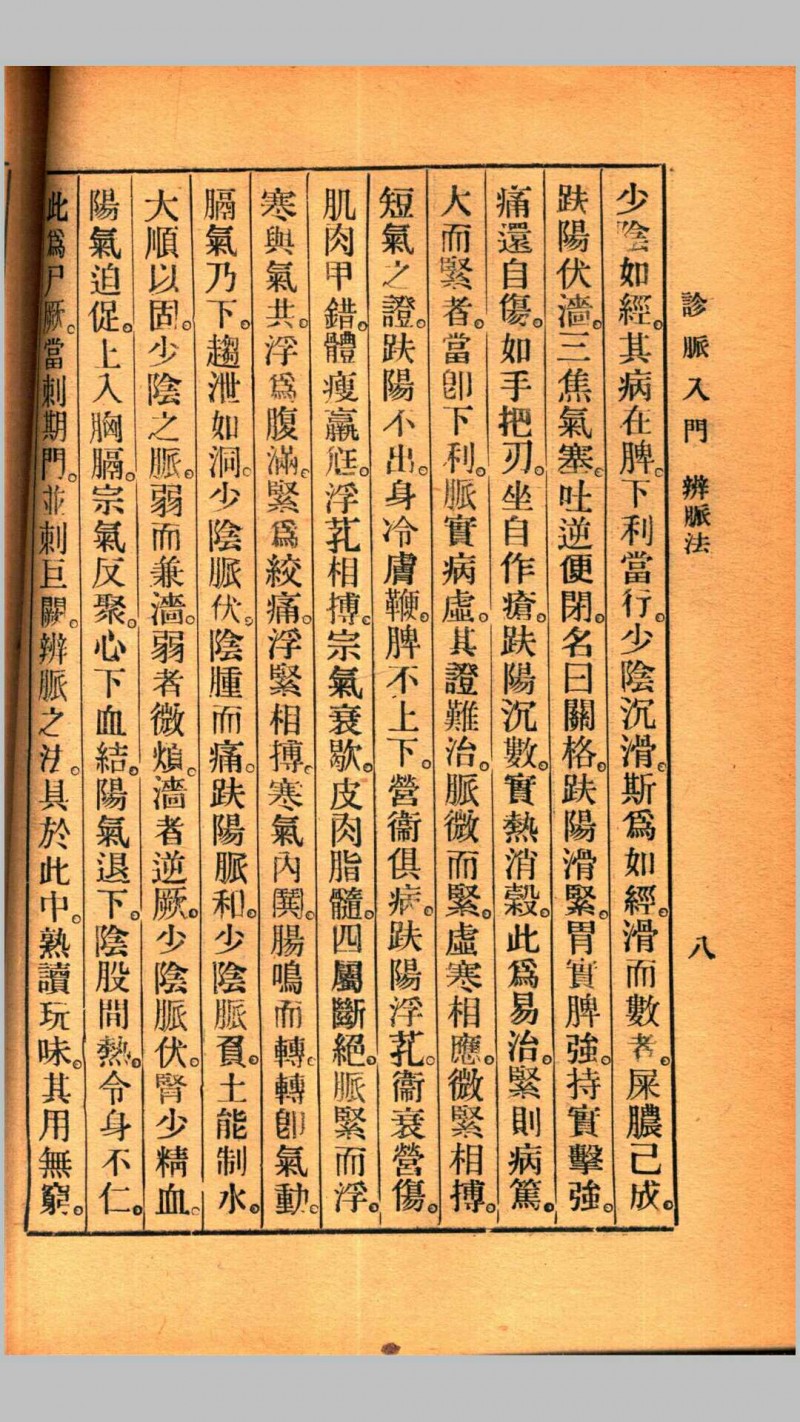 診脈入門 辨脈法
八
少陰如經。其病在脾。下利當行。少陰沉滑。斯爲如經。滑而數者。屎膿己成。
趺陽伏濇。三焦氣塞。吐逆便閉。名曰關格。趺陽滑緊。胃實脾強。持實擊強。
痛還自傷。如手把刃。坐自作瘡。趺陽沉數。實熱消穀。此爲易治。緊則病篤。
大而緊者。當卽下利。脈實病虛。其證難治。脈微而緊。虛寒相應。微緊相搏。
短氣之證。趺陽不出。身冷膚鞭。脾不上下。營衞俱病。趺陽浮芤。衞衰營傷。
肌肉甲錯。體瘦羸尩。浮芤相搏。宗氣衰歇。皮肉脂髓。四屬斷絕。脈緊而浮。
寒與氣共。浮爲腹滿。緊爲絞痛。浮緊相搏。寒氣內鬨。腸鳴而轉。轉卽氣動。
膈氣乃下。趨泄如洞。少陰脈伏。陰腫而痛。趺陽脈和。少陰脈負。土能制水。
大順以固。少陰之脈。弱而兼濇。弱者微煩。濇者逆厥。少陰脈伏。腎少精血。
陽氣迫促。上入胸膈。宗氣反聚。心下血結。陽氣退下。陰股間熱。令身不仁。
此爲尸厥。當刺期門。並刺巨闕。辨脈之法。具於此中。熟讀玩味。其用無窮。